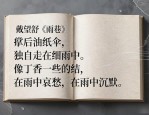 戴望舒《雨巷》
撑后油纸伞，
独自走在细雨中。
像丁香一些的结，
在雨中哀愁，在雨中沉默。